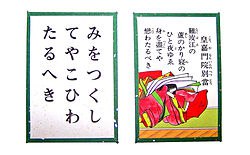 皇嘉門院別當
難波江の
蘆のかり寝の
ひと夜ゆゑ
身を盡てや
戀わたるべき
みをつくし
てやこひわ
たるへき